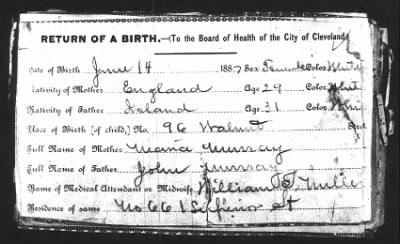 RETURN OF A BIRTH.—(To the Board of Health of the City of Cleveland
Date of Birth June 14 1887 Sex Female Color White
Nativity of Mother England Age 29 Color
Nativity of Father Ireland Age 31 Color
Place of Birth (of child,) No. 96 Walnut
Full Name of Mother Murray
Full Name of Father John Murray
Name of Medical Attendant or Midwife William T.
Residence of same No 661 Superior St